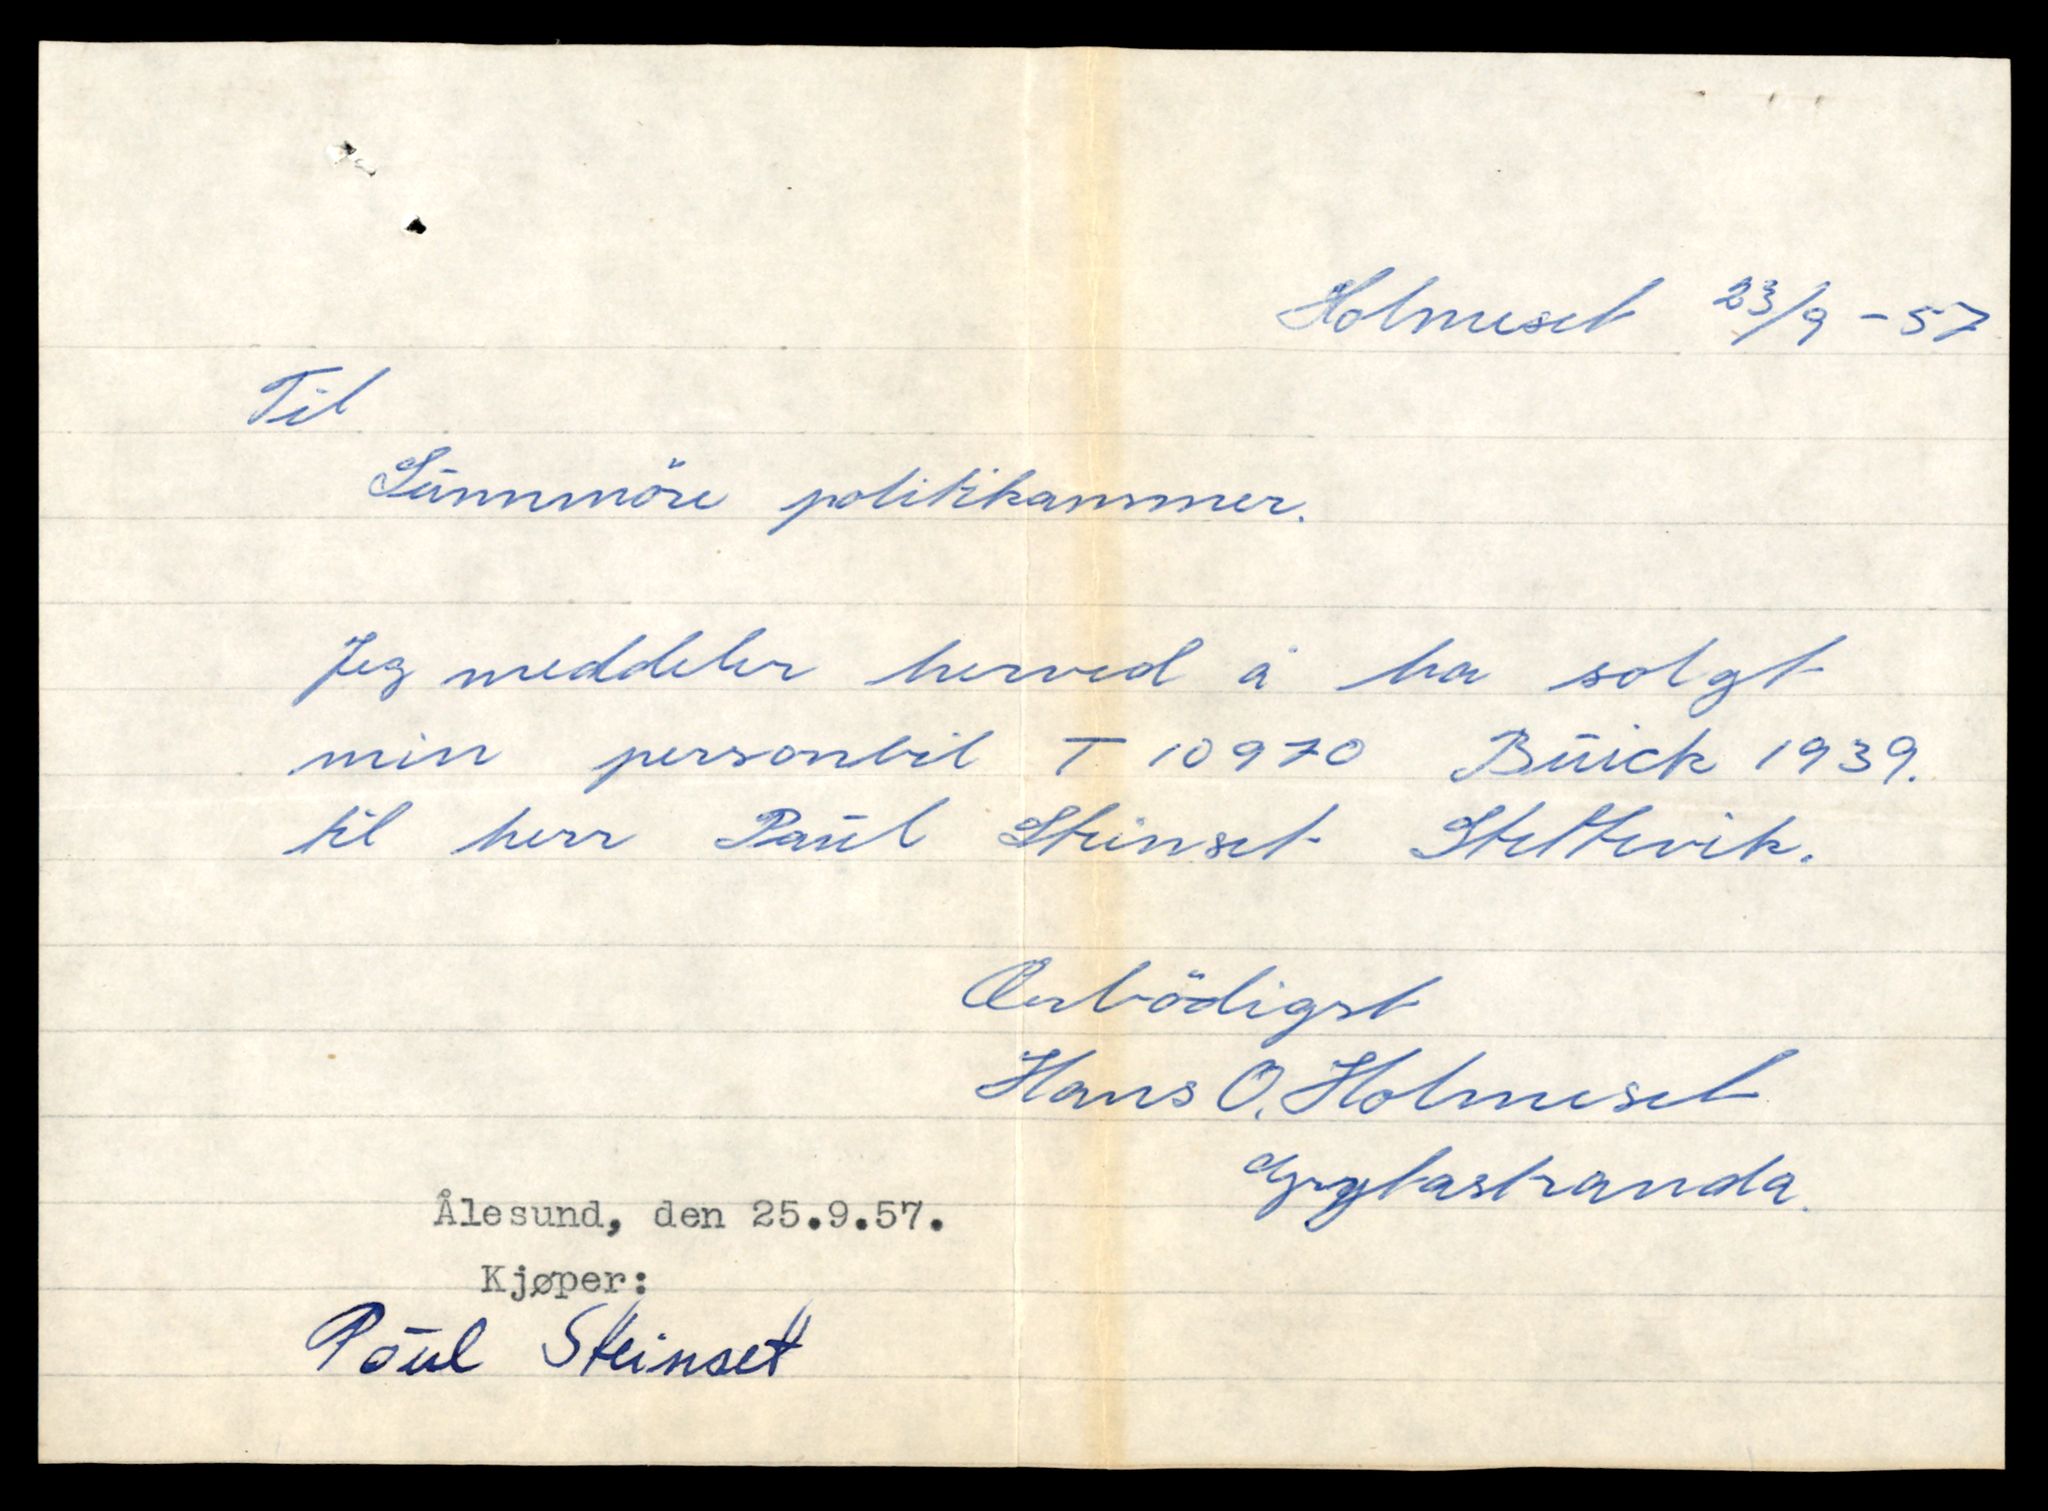 Holmeset 23/9 - 57
Til
Sunnmöre politikammer.
Jeg meddeler herved å ha solgt
min personbil T 10970 Buick 1939.
til herr Paul Steinset Stettevik.
Ærbödigst
Hans O. Holmeset
Grytastranda.
Ålesund, den 25.9.57.
Kjøper:
Paul Steinset